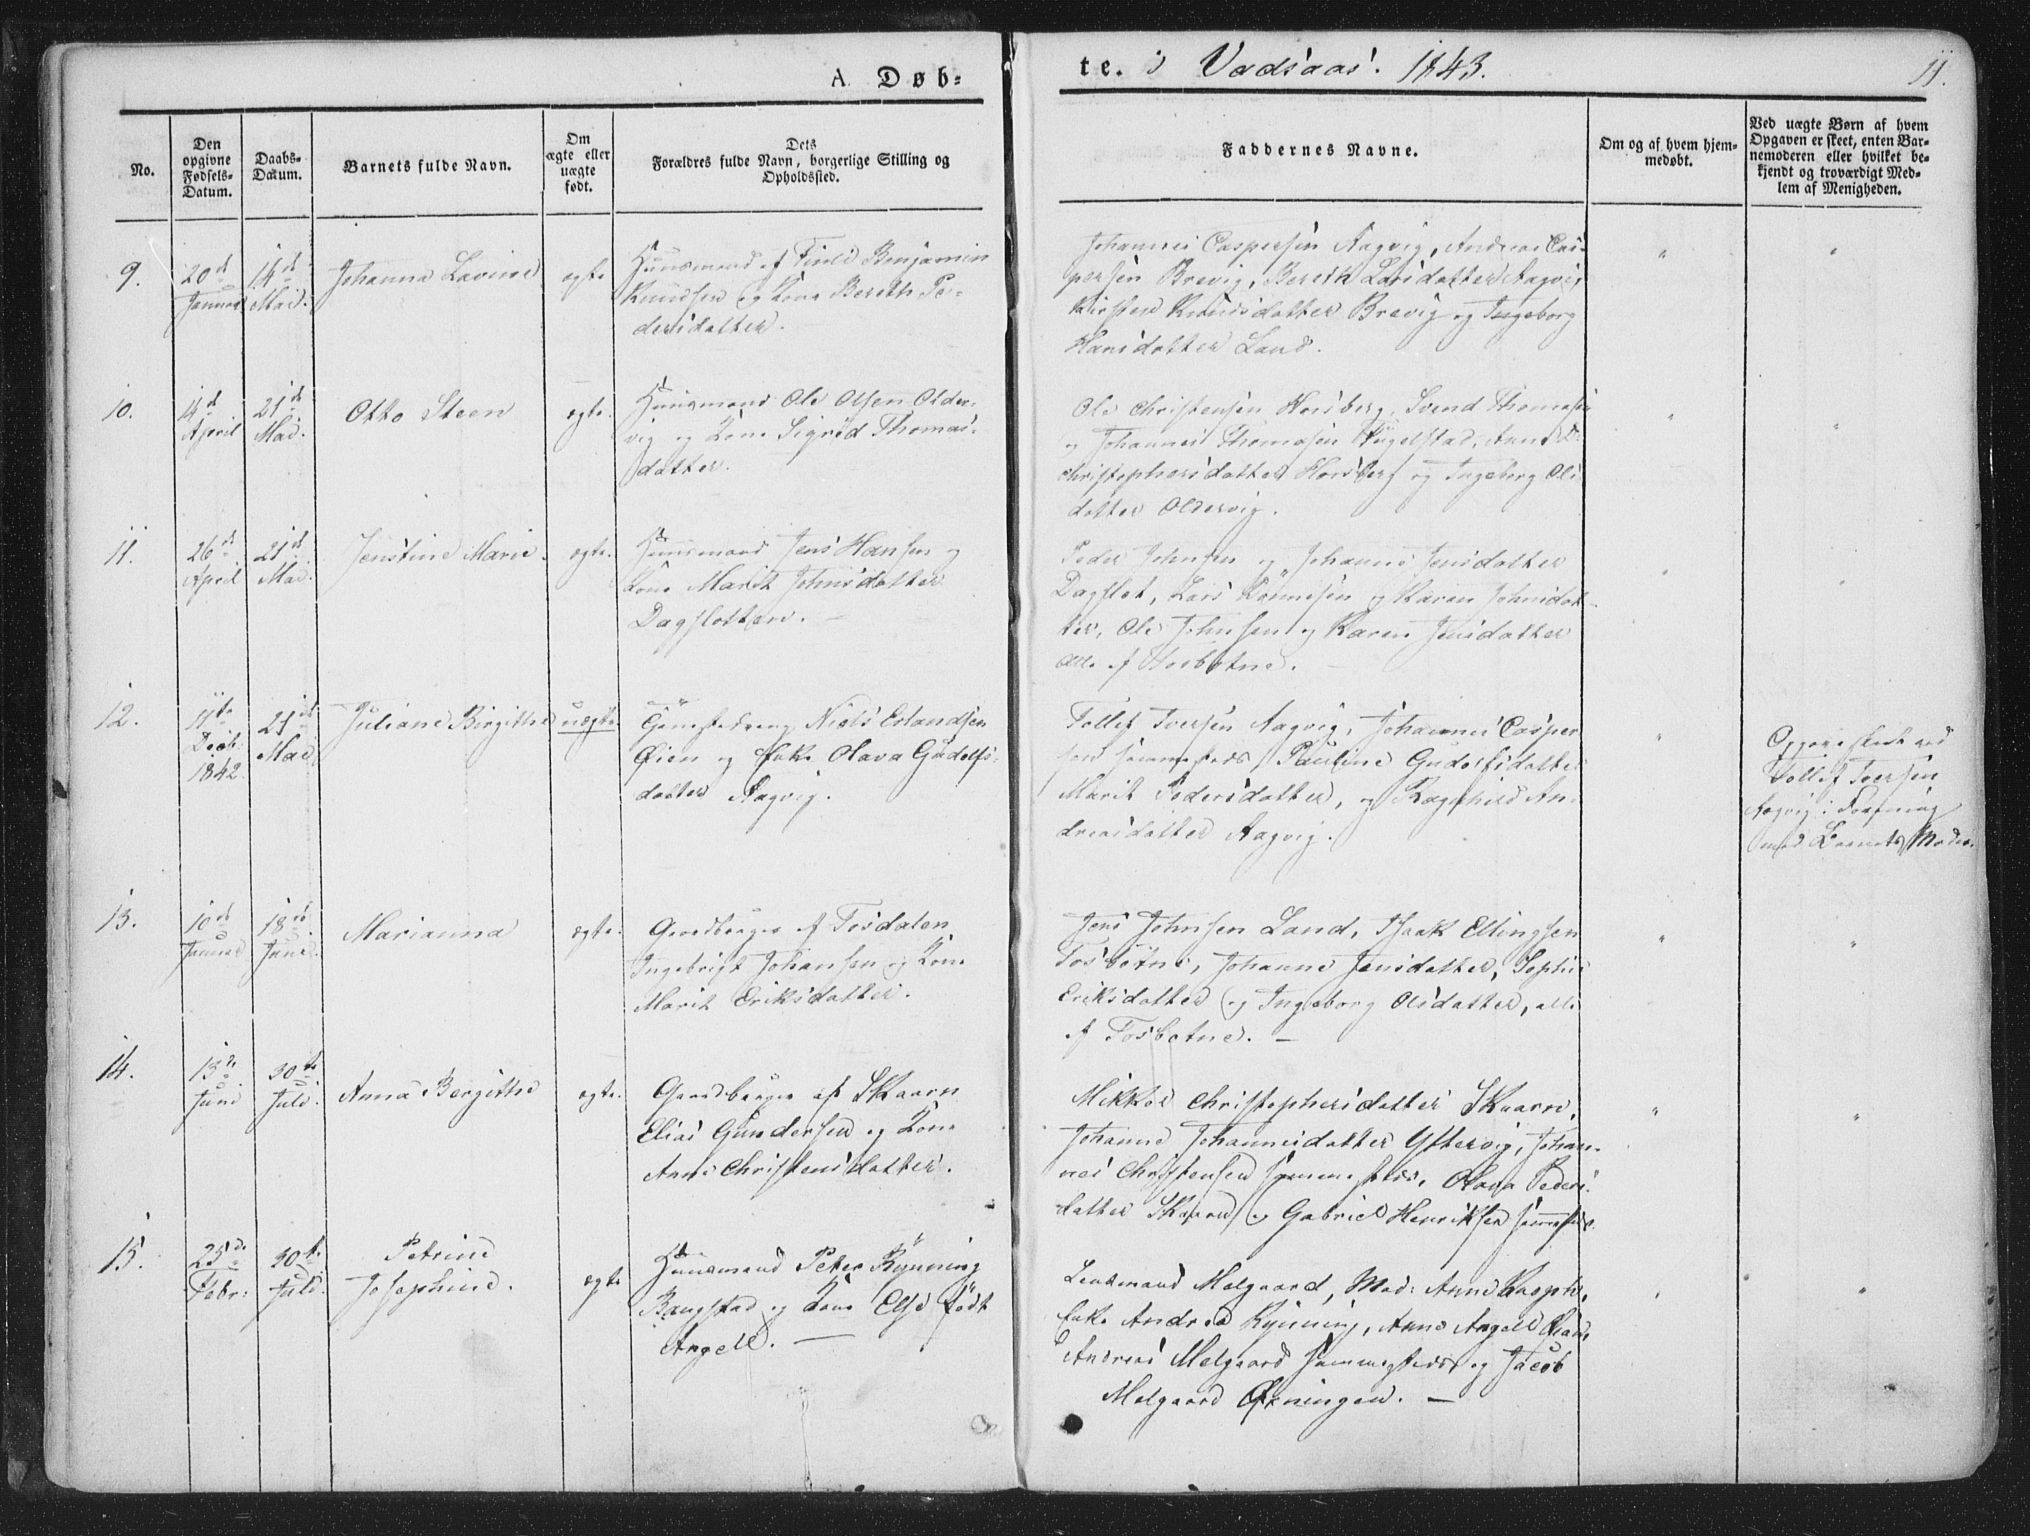 A. Døb=
te. i Vadsaas. 1843.
11.
No.
Den
opgivne
Fødsels-
Datum.
Daabs-
Datum.
Barnets fulde Navn.
Om
ægte eller
uægte
født.
Dets
Forældres fulde Navn, borgerlige Stilling og
Opholdssted.
Faddernes Navne.
Om og af hvem hjem-
medøbt.
Ved uægte Børn af hvem
Opgaven er skeet, enten Bar-
nemoderen eller hvilket be-
kjendt og troværdigt Med-
lem af Menigheden.
9.
20de
Januar
14de
Mai.
Johanna Lavine
ægte
Huusmand af Benjamin
Knudsen og Kone Bereth Pe-
dersdatter.
Johannes Caspersen Aagvig, Andreas Cas-
persen Brevig, Bereth Larsdatter Aagvig
Kirsten Knudsdatter Brevig og Ingeborg
Hansdatter Land.
"
"
10.
14de
April
21de
Mai.
Otto Steen
ægte.
Huusmand Ole Olsen Older-
vig og Kone Sigrid Thomas-
datter.
Ole Christensen Horsberg, Svend Thomasen
og Johannes Thomasen Anne
Christophersdatter Horsberg og Ingeborg Ols
datter Oldervig.
"
"
11.
26de
April
21de
Mai.
Jenstine Marie.
ægte.
Huusmand Jens Hansen og
Kone Marit Johnsdatter
Dagslotten. —
Peder Johnsen og Johanne Jensdatter
Dagslot, Lars og Karen Johnsdat-
ter, Ole Johnsen og Karen Jensdatter
alle af Tosbotne. —
"
"
12.
11te
Decb.
1842.
21de
Mai
Juliane Birgitha
uægte.
Tjenestedreng Niels Erlandsen
Øien og Enke Olava Gudolfs-
datter Aagvig.
Tollef Iversen Aagvig, Johannes Casper
sen sammesteds, Pauline Gudolfsdatter
Marit Pedersdatter, og Ragnhild An-
dreasdatter Aagvig.
"
Opgave skeet ved
Tollef Iversen
Aagvig i Forening
med Barnets Moder.
13.
10de
Januar
18de
Juni.
Marianna
ægte.
Gaardbruger af Tosdalen
Ingebrigt Johansen og Kone
Marit Eriksdatter.
Jens Johnsen Land, Isaak Ellingsen
Tosbotne, Johanne Jensdatter, Sophie
Eriksdatter og Ingeborg Olsdatter, alle
af Tosbotne. —
"
"
14.
13de
Juni
30te
Juli.
Anna Bergitha
ægte.
Gaardbruger af Skaarn
Elias Gundersen og Kone
Anne Christensdatter.
Mikkel Christophersdatter Skaarn,
Johanne Johannesdatter Yttervig, Johan-
nes Christensen sammesteds, Olava Peders-
datter Skaarn og Gabriel Henriksen sammesteds.
"
"
15.
25de
Febr:
30te
Juli.
Petrine
Josephine.
ægte
Huusmand Peter Rynning
Bangstad og Kone Else født
Angell. —
Lensmand Melgaard, Mad: Anne
Enke Andrea Rynning, Anne Angell
Andreas Melgaard sammesteds og Jacob
Melgaard Ørningen. —
"
"